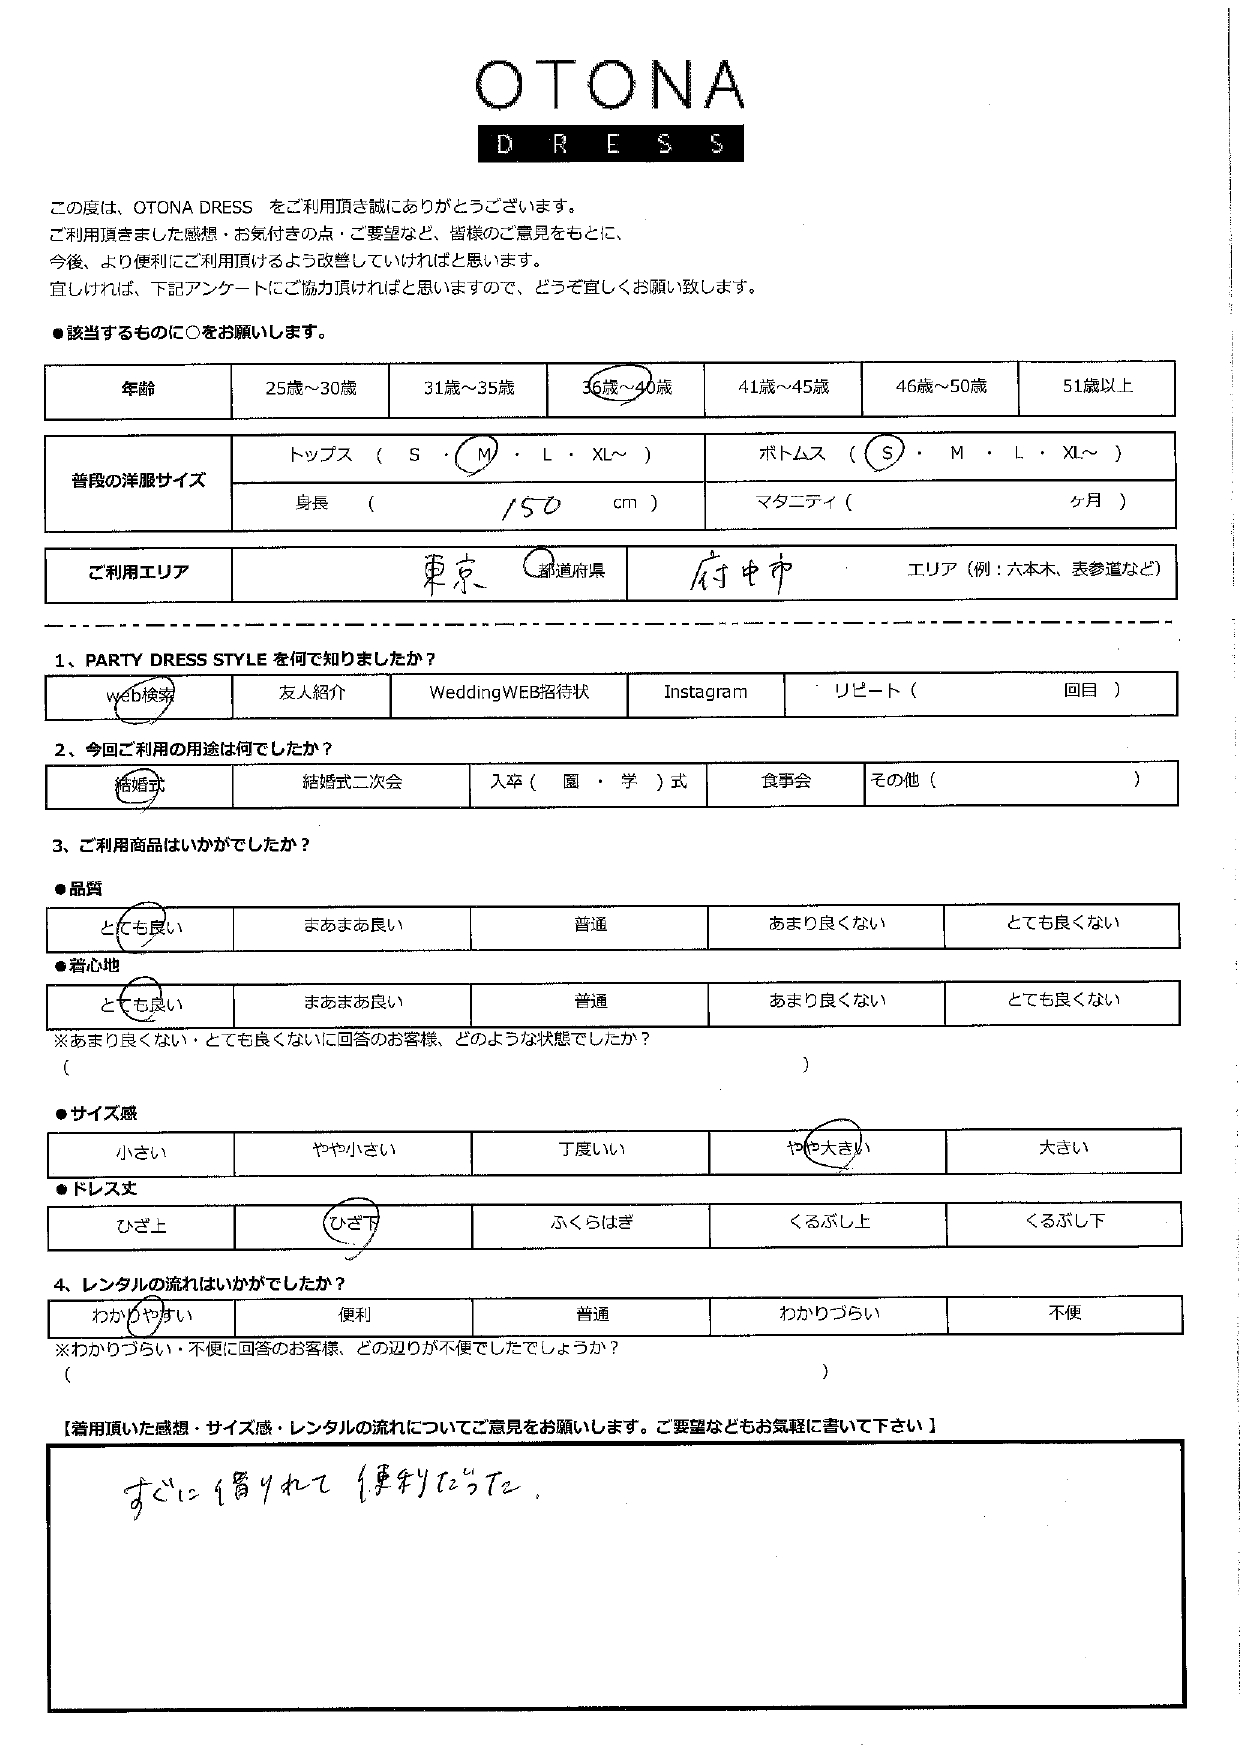 OTONA
DRESS
この度は、OTONA DRESS をご利用頂き誠にありがとうございます。
ご利用頂きました感想・お気付きの点・ご要望など、皆様のご意見をもとに、
今後、より便利にご利用頂けるよう改善していければと思います。
宜しければ、下記アンケートにご協力頂ければと思いますので、どうぞ宜しくお願い致します。
●該当するものに○をお願いします。
年齢 25歳～30歳 31歳～35歳 36歳～40歳 41歳～45歳 46歳～50歳 51歳以上
普段の洋服サイズ トップス ( S ・ M ・ L ・ XL～ ) ボトムス ( S ・ M ・ L ・ XL～ )
身長 ( 150 cm ) マタニティ ( ヶ月 )
ご利用エリア 東京 都道府県 府中市 エリア（例：六本木、表参道など）
1、PARTY DRESS STYLE を何で知りましたか？
web検索 友人紹介 WeddingWEB招待状 Instagram リピート ( 回目 )
2、今回ご利用の用途は何でしたか？
結婚式 結婚式二次会 入卒 ( 園 ・ 学 ) 式 食事会 その他 ( )
3、ご利用商品はいかがでしたか？
●品質
とても良い まあまあ良い 普通 あまり良くない とても良くない
●着心地
とても良い まあまあ良い 普通 あまり良くない とても良くない
※あまり良くない・とても良くないに回答のお客様、どのような状態でしたか？
( )
●サイズ感
小さい やや小さい 丁度いい やや大きい 大きい
●ドレス丈
ひざ上 ひざ下 ふくらはぎ くるぶし上 くるぶし下
4、レンタルの流れはいかがでしたか？
わかりやすい 便利 普通 わかりづらい 不便
※わかりづらい・不便に回答のお客様、どの辺りが不便でしたでしょうか？
( )
【着用頂いた感想・サイズ感・レンタルの流れについてご意見をお願いします。ご要望などもお気軽に書いて下さい】
すぐに借りれて便利だった.